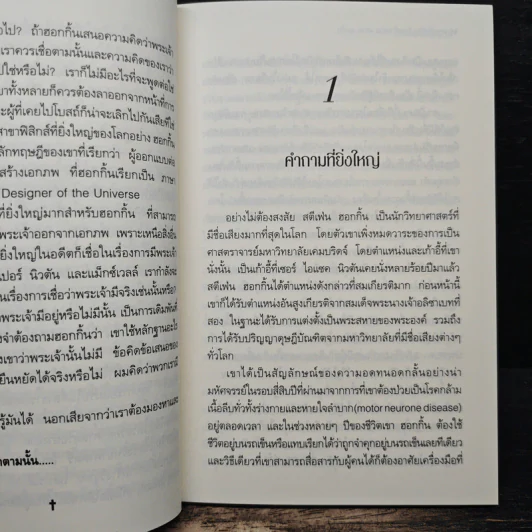 อไป? ถ้าฮอกกิ้นเสนอความคิดว่าพระเจ้า
เราควรเชื่อตามนั้นและความคิดของเราว่า
ปใช่หรือไม่? เราก็ไม่มีอะไรที่จะพูดต่อไป
ทั้งหลายก็ควรต้องลาออกจากหน้าที่การ
ะผู้ที่เคยไปโบสถ์ก็น่าจะเลิกไปกันเสียทีใช่
สาขาฟิสิกส์ที่ยิ่งใหญ่ของโลกอย่าง ฮอกกิ้น
ลักทฤษฎีของเขาที่เรียกว่า ผู้ออกแบบต่อ
สร้างเอกภพ ที่ฮอกกิ้นเรียกเป็น ภาษา
Designer of the Universe
ที่ยิ่งใหญ่มากสำหรับฮอกกิ้น ที่สามารถ
พระเจ้าออกจากเอกภพ เพราะเหนือสิ่งอื่น
ยิ่งใหญ่ในอดีตก็เชื่อในเรื่องการมีพระเจ้า
ปอร์ นิวตัน และแม็กซ์เวลล์ เรากำลังจะ
นเรื่องการเชื่อว่าพระเจ้ามีจริงเช่นนั้นหรือ?
เจ้ามีอยู่หรือไม่มีนั้น เป็นการเดิมพันที่
จำต้องถามฮอกกิ้นว่า เขาใช้หลักฐานอะไร
งเขาว่าพระเจ้านั้นไม่มี ข้อคิดข้อเสนอของ
ยืนหยัดได้จริงหรือไม่ ผมคิดว่าพวกเรามี
รู้มันได้ นอกเสียจากว่าเราต้องมองหาและ
ตามนั้น.....
1
คำถามที่ยิ่งใหญ่
อย่างไม่ต้องสงสัย สตีเฟ่น ฮอกกิ้น เป็นนักวิทยาศาสตร์ที่
มีชื่อเสียงมากที่สุดในโลก โดยตัวเขาเพิ่งหมดวาระของการเป็น
ศาสตราจารย์มหาวิทยาลัยเคมบริดจ์ โดยตำแหน่งและเก้าอี้ที่เขา
นั่งนั้น เป็นเก้าอี้ที่เซอร์ ไอแซค นิวตันเคยนั่งหลายร้อยปีมาแล้ว
สตีเฟ่น ฮอกกิ้นได้ตำแหน่งดังกล่าวที่สมเกียรติมาก ก่อนหน้านี้
เขาก็ได้รับตำแหน่งอันสูงเกียรติจากสมเด็จพระนางเจ้าอลิซาเบทที่
สอง ในฐานะได้รับการแต่งตั้งเป็นพระสหายของพระองค์ รวมถึง
การได้รับปริญญาดุษฎีบัณฑิตจากมหาวิทยาลัยที่มีชื่อเสียงต่างๆ
ทั่วโลก
เขาได้เป็นสัญลักษณ์ของความอดทนอดกลั้นอย่างน่า
มหัศจรรย์ในรอบสี่สิบปีที่ผ่านมาจากการที่เขาต้องป่วยเป็นโรคกล้าม
เนื้อลีบทั่วทั้งร่างกายและหายใจลำบาก(motor neurone disease)
อยู่ตลอดเวลา และในช่วงหลายๆ ปีของชีวิตเขา ฮอกกิ้น ต้องใช้
ชีวิตอยู่บนรถเข็นหรือแทบเรียกได้ว่าถูกจำคุกอยู่บนรถเข็นเลยทีเดียว
และวิธีเดียวที่เขาสามารถสื่อสารกับผู้คนได้ก็ต้องอาศัยเครื่องมือที่